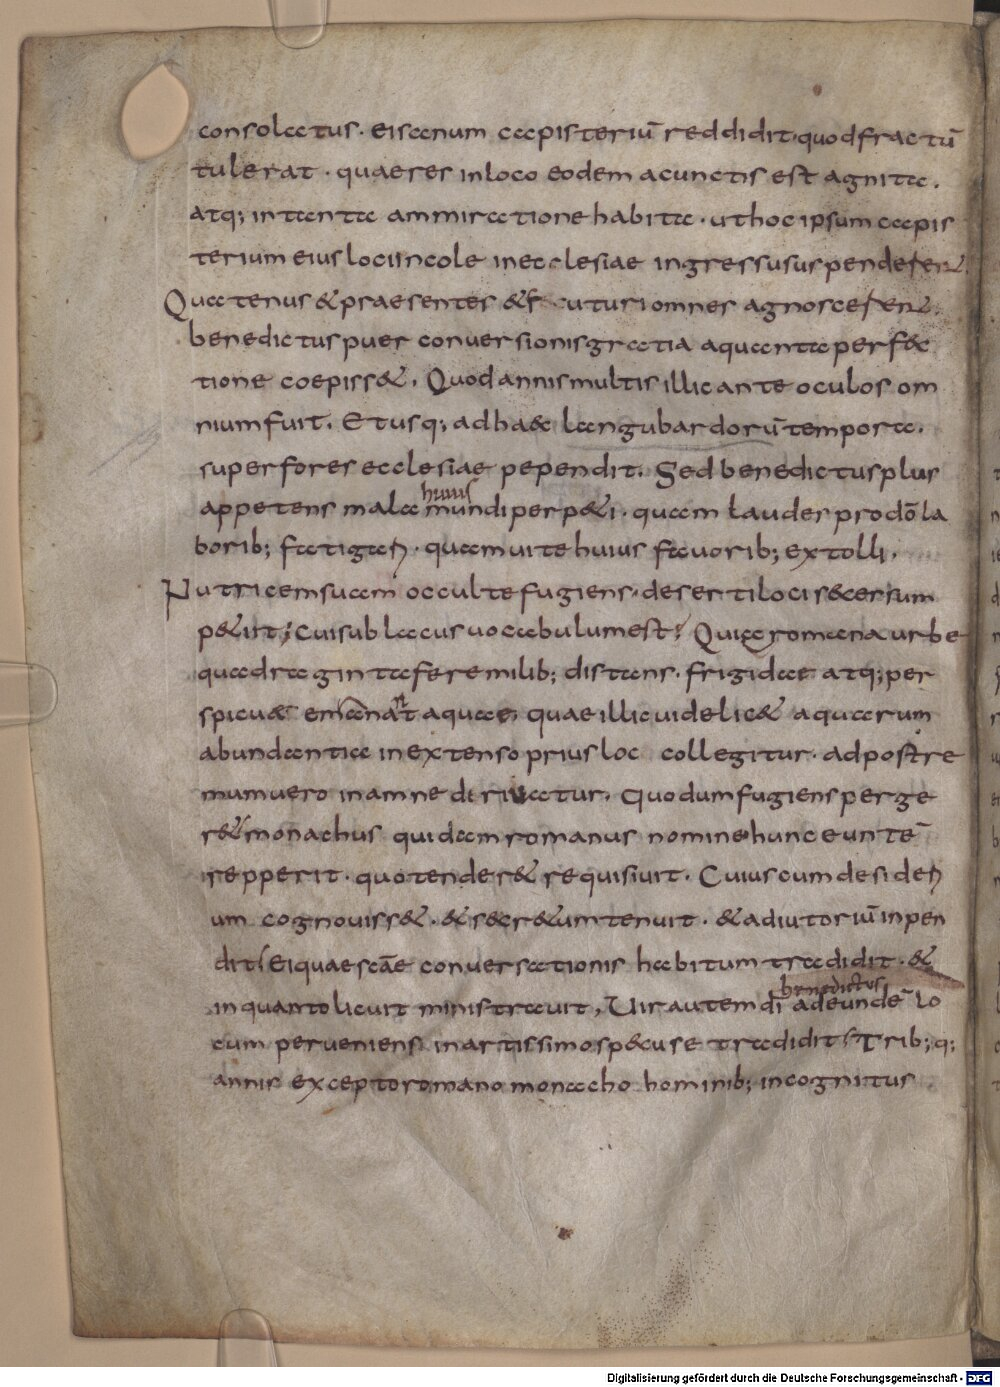 consolatus. ei sanum capisteriū reddidit. quod fractū
tulerat. quae res in loco eodem a cunctis est agnita.
atq; in tanta ammiratione habita. ut hoc ipsum capis
terium eius loci incole in ecclesiae ingressu suspenderen&.
Quatenus & praesentes & f uturi omnes agnosceren&.
benedictus puer conversionis gratia a quanta perfec
tione coepiss&. Quod annis multis illic ante oculos om
nium fuit. Et usq; ad haec langubardorū tempora.
super fores ecclesiae pependit. Sed benedictus plus
huius
appetens mala mundi perp&i. quam laudes prodō la
borib; fatigari. quam uite huius fauorib; extolli.
Nutricem suam occulte fugiens. deserti loci secessum
p&iit; cui sublacus uocabulum est; Qui a romana urbe
quadraginta fere milib; distans. frigidas atq; per
spicuas emanat aquas. quae illic uidelic& aquarum
abundantia in extenso prius loc collegitur. ad postre
mum uero in amne deriuatur. Quo dum fugiens perge
r& monachus quidam romanus nomine hunc euntē
repperit. quo tender& requisiuit. Cuius cum desideri
um cognouiss&. & secr&um tenuit. & adiutoriū inpen
dit. Ei quae scāe conversationis habitum tradidit. &
benedictus
in quanto licuit ministrauit, Uir autem dī ad eundē lo
cum perveniens in artissimo specu se tradidit. Trib; q;
annis excepto romano monacho hominib; incognitus
Digitalisierung gefördert durch die Deutsche Forschungsgemeinschaft - DFG